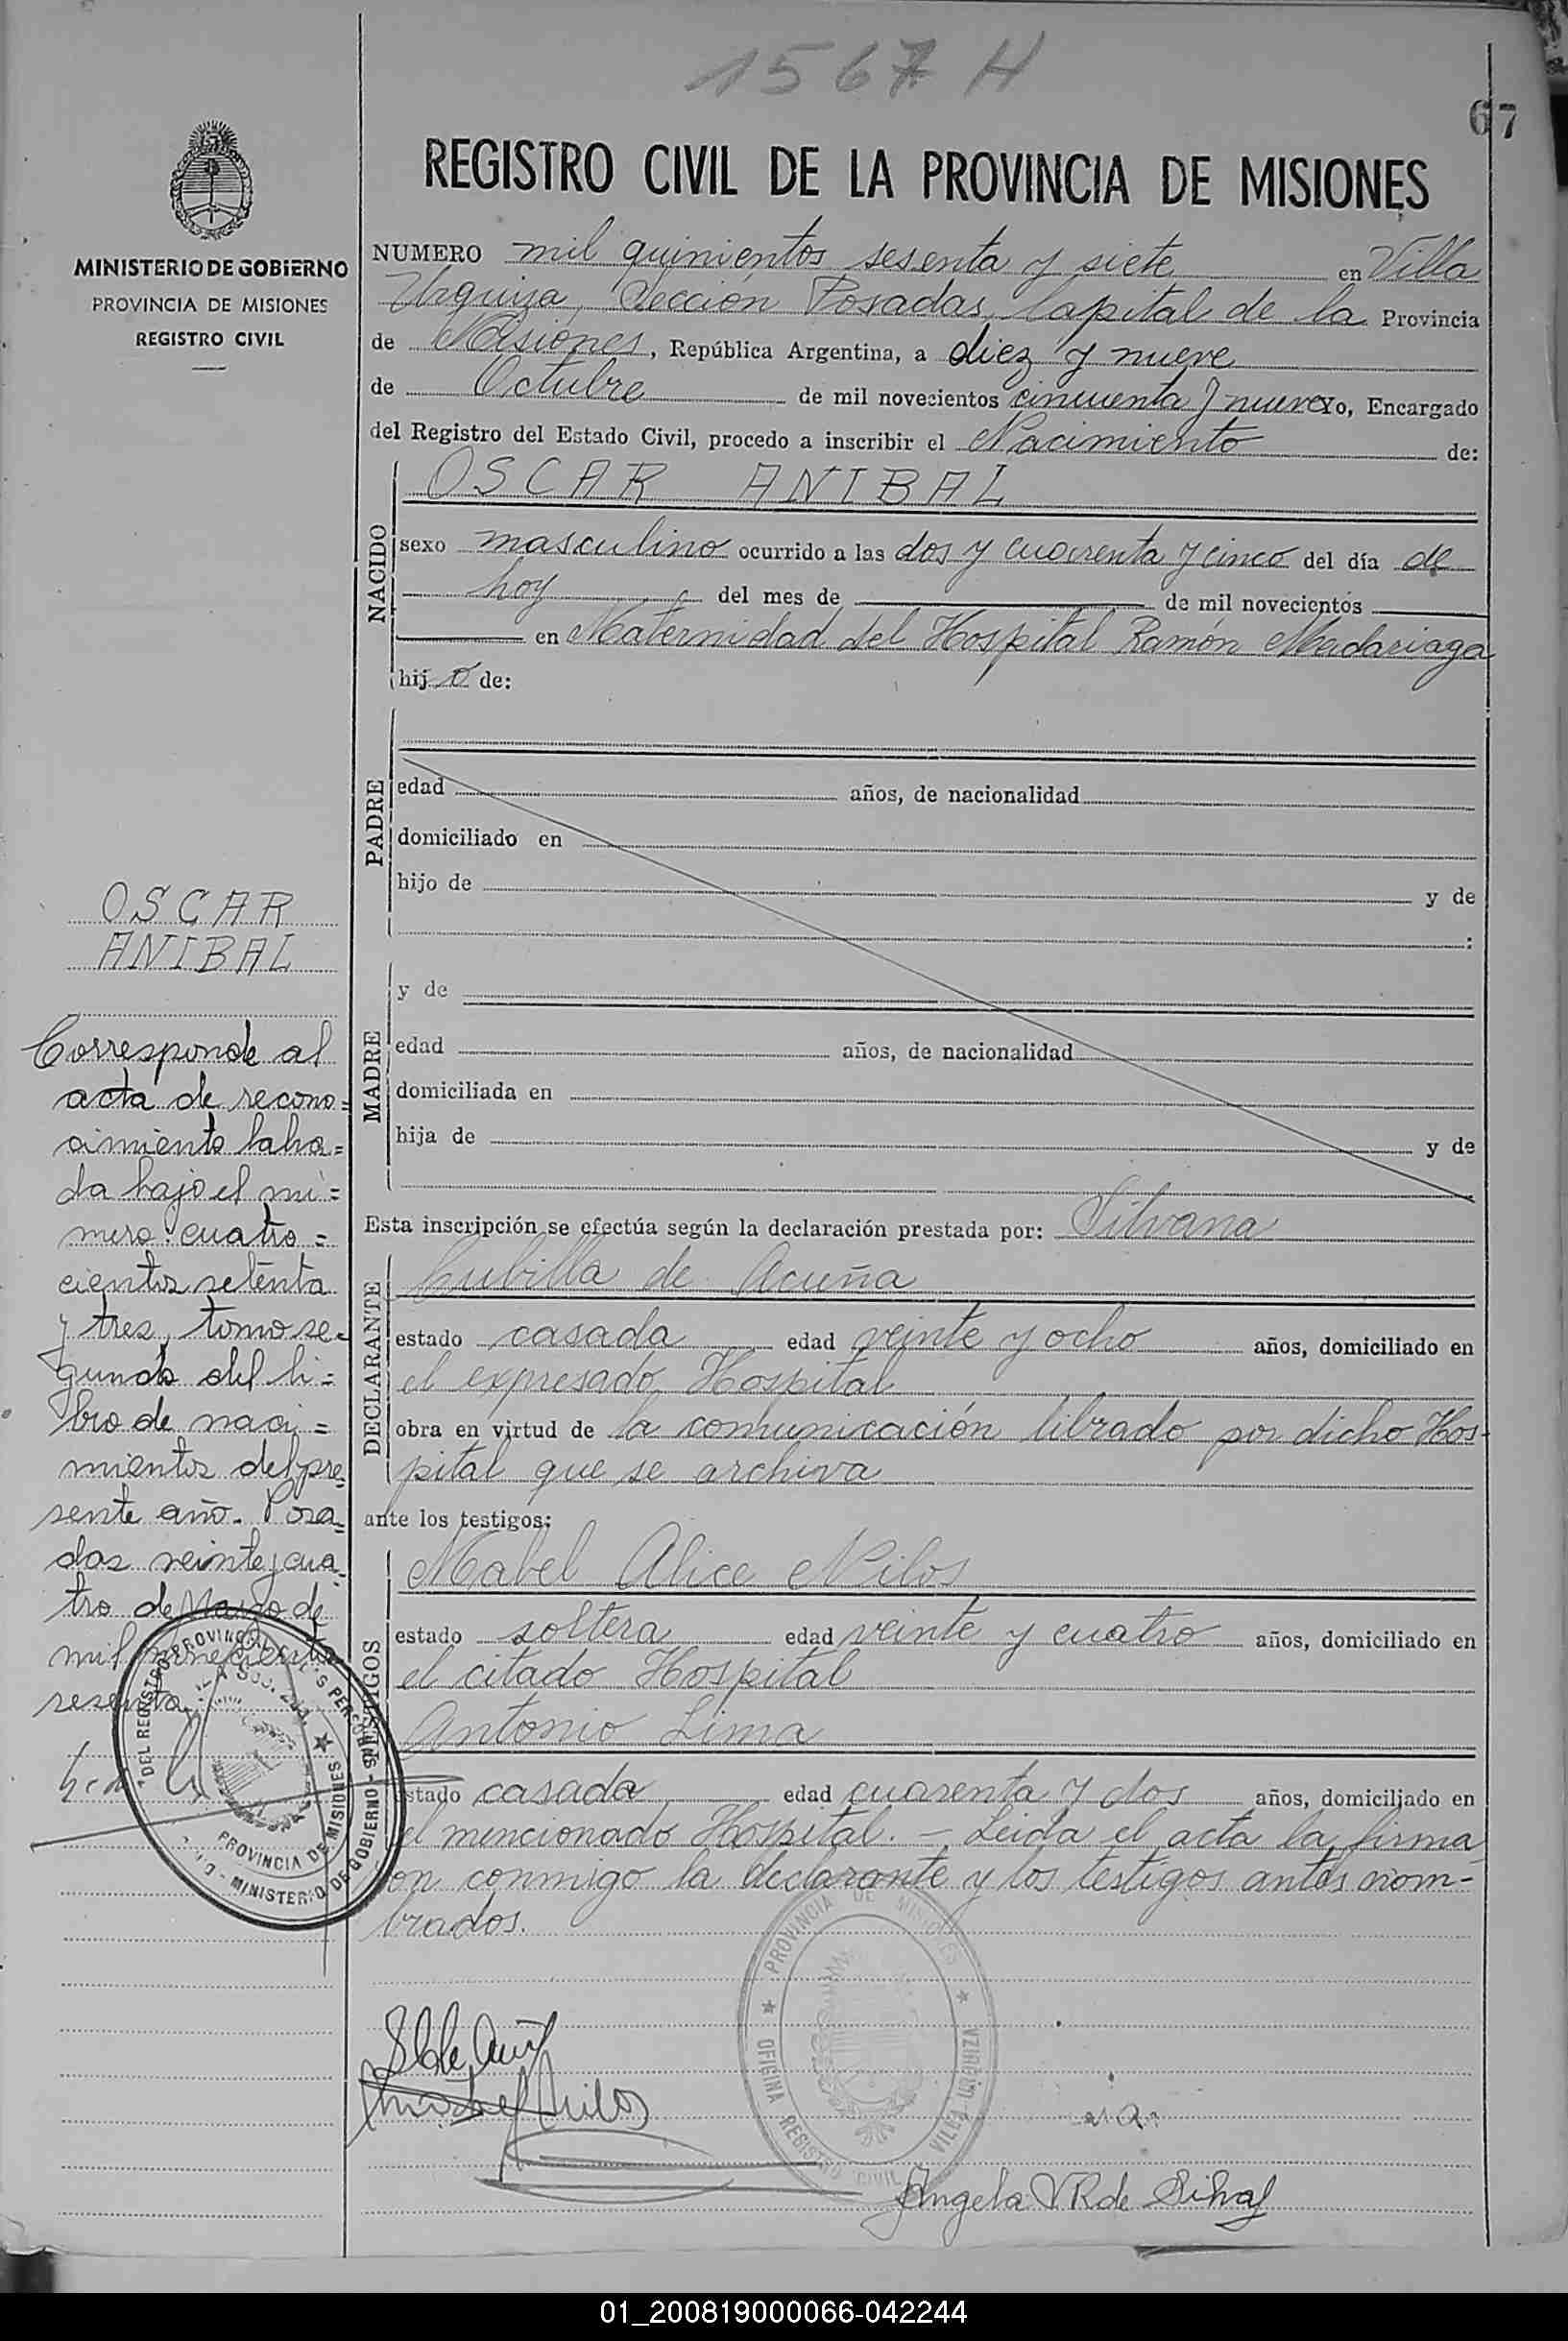 1567 H
67
REGISTRO CIVIL DE LA PROVINCIA DE MISIONES
MINISTERIO DE GOBIERNO
PROVINCIA DE MISIONES
REGISTRO CIVIL
NUMERO mil quinientos sesenta y siete en Villa
Urquiza, Sección Posadas, Capital de la Provincia
de Misiones, República Argentina, a diez y nueve
de Octubre de mil novecientos cincuenta y nueve yo, Encargado
del Registro del Estado Civil, procedo a inscribir el Nacimiento de:
NACIDO
OSCAR ANIBAL
sexo masculino ocurrido a las dos y cuarenta y cinco del día de
hoy del mes de de mil novecientos
en Maternidad del Hospital Ramón Madariaga
hijo de:
PADRE
edad años, de nacionalidad
domiciliado en
hijo de y de
:
MADRE
y de
edad años, de nacionalidad
domiciliada en
hija de y de
Esta inscripción se efectúa según la declaración prestada por: Silvana
DECLARANTE
Cubilla de Acuña
estado casada edad veinte y ocho años, domiciliado en
el expresado Hospital
obra en virtud de la comunicación librado por dicho Hos-
pital que se archiva
ante los testigos:
TESTIGOS
Mabel Alice Nilos
estado soltera edad veinte y cuatro años, domiciliado en
el citado Hospital
Antonio Lima
estado casada edad cuarenta y dos años, domiciliado en
el mencionado Hospital. - Leida el acta la firma
on conmigo la declarante y los testigos antes nom-
brados.
OSCAR
ANIBAL
Corresponde al
acta de recono=
cimiento labra=
da bajo el nú=
mero: cuatro=
cientos setenta
y tres, tomo se-
gundo del li=
bro de naci=
mientos del pre
sente año. Posa=
das veinte y cua
tro de Marzo de
mil novecientos
sesenta
DEL REGISTRO PROVINCIAL DE LAS PERSONAS
PROVINCIA DE MISIONES
MINISTERIO DE GOBIERNO
PROVINCIA DE MISIONES
OFICINA REGISTRO CIVIL VILLA URQUIZA
S C de Acuña
Mabel Nilos
Angela V R de Silva
01_200819000066-042244